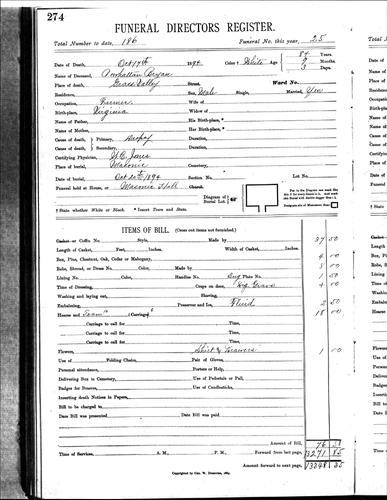 274
FUNERAL DIRECTORS REGISTER.
Total Number to date, 186 Funeral No. this year, 25
Date of Death, Oct 19th 1894 Color † White Age { 84 Years. 9 Months. 3 Days.
Name of Deceased, Powhattan Bryan
Place of Death, Grass Valley Street. Ward No.
Residence, Sex, Male Single, Married, Yes
Occupation, Farmer Wife of
Birth-place, Virginia Widow of
Name of Father, His Birth-place, *
Name of Mother, Her Birth-place, *
Cause of death, { Primary, Dropsy Duration,
Cause of death, { Secondary, Duration,
Certifying Physician, W.C. Jones
Place of burial, Masonic Cemetery,
Date of burial, Oct 21st 1894 Section No. Lot No.
Funeral held at House, or Masonic Hall Church.
Diagram of Burial Lot.
† State whether White or Black. * Insert Town and State.
ITEMS OF BILL. (Cross out items not furnished.)
Casket or Coffin No. Style, Made by 37 50
Length of Casket, Feet, Inches. Width of Casket, Inches.
Box, Pine, Chestnut, Oak, Cedar or Mahogany, 4 00
Robe, Shroud, or Dress No. Color, Made by
Lining No. Color, Handles No. Eng Plate No.
Time of Dressing, Crape on door,
Washing and laying out, Shaving,
Embalming, Preserver and Ice, Fluid 2 50
Hearse and Team Carriages 6 18 00
Carriage to call for Time,
Carriage to call for Time,
Carriage to call for Time,
Carriage to call for Time,
Flowers, Shirt & Drawers 1 00
Use of Folding Chairs, Pair of Gloves,
Personal attendance, Porters or Help,
Delivering Box to Cemetery, Use of Pedestals or Pall,
Badges for Bearers, Use of Candlesticks,
Inserting death Notices in Papers,
Bill to be charged to
Date Bill was presented Date Bill was paid
Amount of Bill,
Time of Service, A. M., P. M. Forward from last page, 13271 85
Amount forward to next page, 13348 35